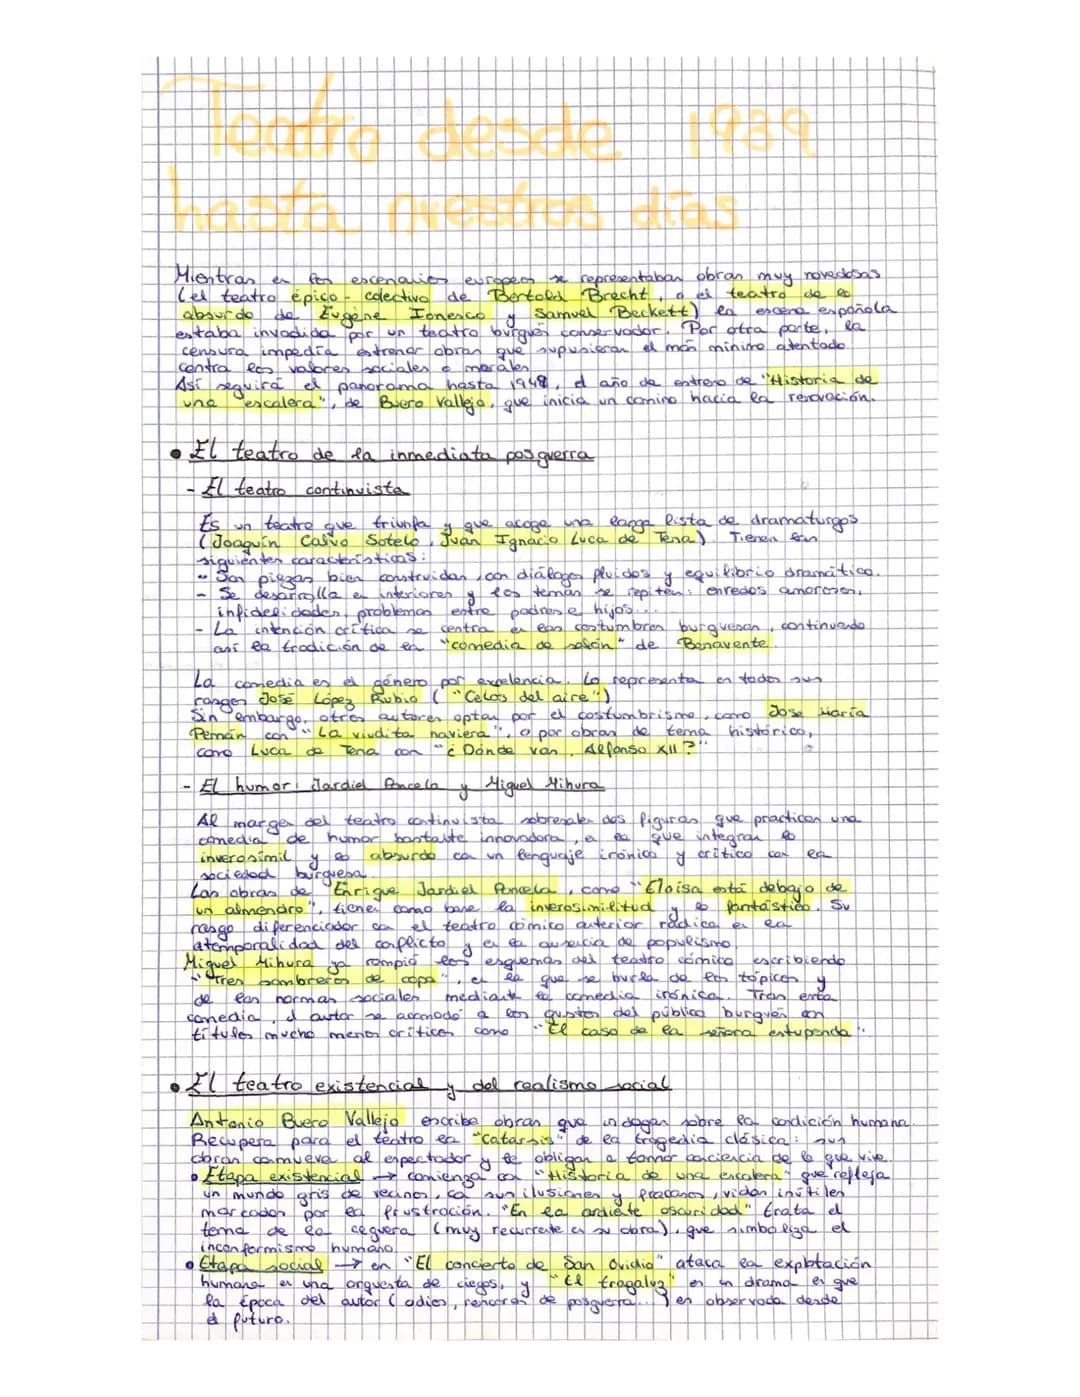 Teatro desde 1939
hasta nuestros días
Mientras en los escenarios europeos se representaban obras muy novedosas
(el teatro épico-colectivo de Bertold Brecht, o el teatro de lo
absurdo de Eugène Ionesco y Samuel Beckett) la escena española
estaba invadida por un teatro burgués conservador. Por otra parte, la
censura impedía estrenar obras que supusieran el más mínimo atentado
contra los valores sociales o morales.
Así seguirá el panorama hasta 1948, el año de estreno de "Historia de
una escalera", de Buero Vallejo, que inicia un camino hacia la renovación.
• El teatro de la inmediata posguerra
- El teatro continuista
Es un teatro que triunfa y que acoge una larga lista de dramaturgos
(Joaquín Calvo Sotelo, Juan Ignacio Luca de Tena). Tienen las
siguientes características:
- Son piezas bien construidas, con diálogos fluidos y equilibrio dramático.
- Se desarrolla en interiores y los temas se repiten: enredos amorosos,
infidelidades, problemas entre padres e hijos...
- La intención crítica se centra en las costumbres burguesas, continuando
así la tradición de la "comedia de salón" de Benavente.
La comedia es el género por excelencia. Lo representa en todos sus
rasgos José López Rubio ("Celos del aire")
Sin embargo, otros autores optan por el costumbrismo, como Jose María
Pemán con "La viudita naviera", o por obras de tema histórico,
como Luca de Tena con "¿Dónde vas, Alfonso XII?"
- El humor: Jardiel Poncela y Miguel Mihura
Al margen del teatro continuista sobresalen dos figuras que practican una
comedia de humor bastante innovadora, en la que integran lo
inverosímil y lo absurdo con un lenguaje irónico y crítico con la
sociedad burguesa.
Las obras de Enrique Jardiel Poncela, como "Eloísa está debajo de
un almendro", tienen como base la inverosimilitud y lo fantástico. Su
rasgo diferenciador con el teatro cómico anterior radica en la
atemporalidad del conflicto y en la ausencia de populismo.
Miguel Mihura ya rompió los esquemas del teatro cómico escribiendo
"Tres sombreros de copa", en la que se burla de los tópicos y
de las normas sociales mediante la comedia irónica. Tras esta
comedia, el autor se acomodó a los gustos del público burgués con
títulos mucho menos críticos como "El caso de la señora estupenda".
• El teatro existencial y del realismo social
Antonio Buero Vallejo escribe obras que indagan sobre la condición humana.
Recupera para el teatro la "Catarsis" de la tragedia clásica: sus
obras conmueven al espectador y le obligan a tomar conciencia de lo que vive.
• Etapa existencial → comienza con "Historia de una escalera" que refleja
un mundo gris de vecinos, con sus ilusiones y fracasos, vidas inútiles
marcadas por la frustración. "En la ardiente oscuridad" trata el
tema de la ceguera (muy recurrente en su obra), que simboliza el
inconformismo humano.
• Etapa social → en "El concierto de San Ovidio" ataca la explotación
humana en una orquesta de ciegos, y "El tragaluz" es un drama en que
la época del autor (odios, rencores de posguerra...) es observada desde
el futuro.